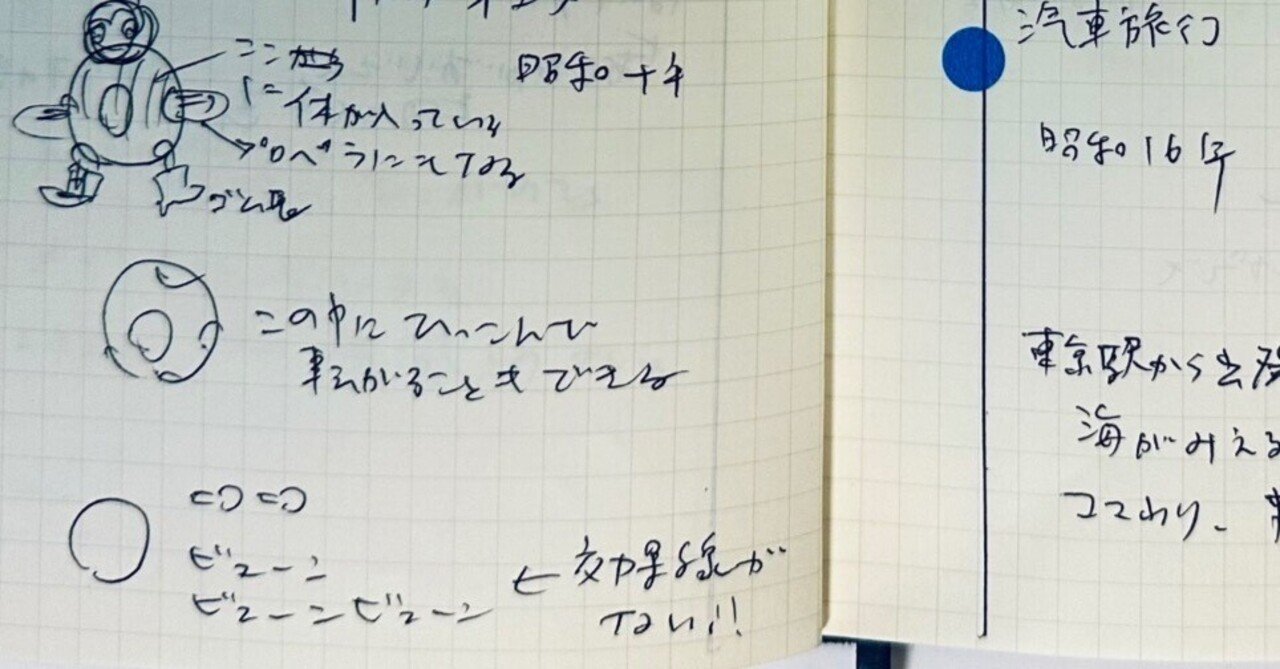 ここから
に
体が入っている
プロペラにもなる
ゴム長
昭和十年
この中にひっこんで
転がることもできる
コロコロ
ビューン
ビューンビューン
← 効果線が
ない!!
汽車旅行
昭和16年
東京駅から出発
海がみえる
コマわり、